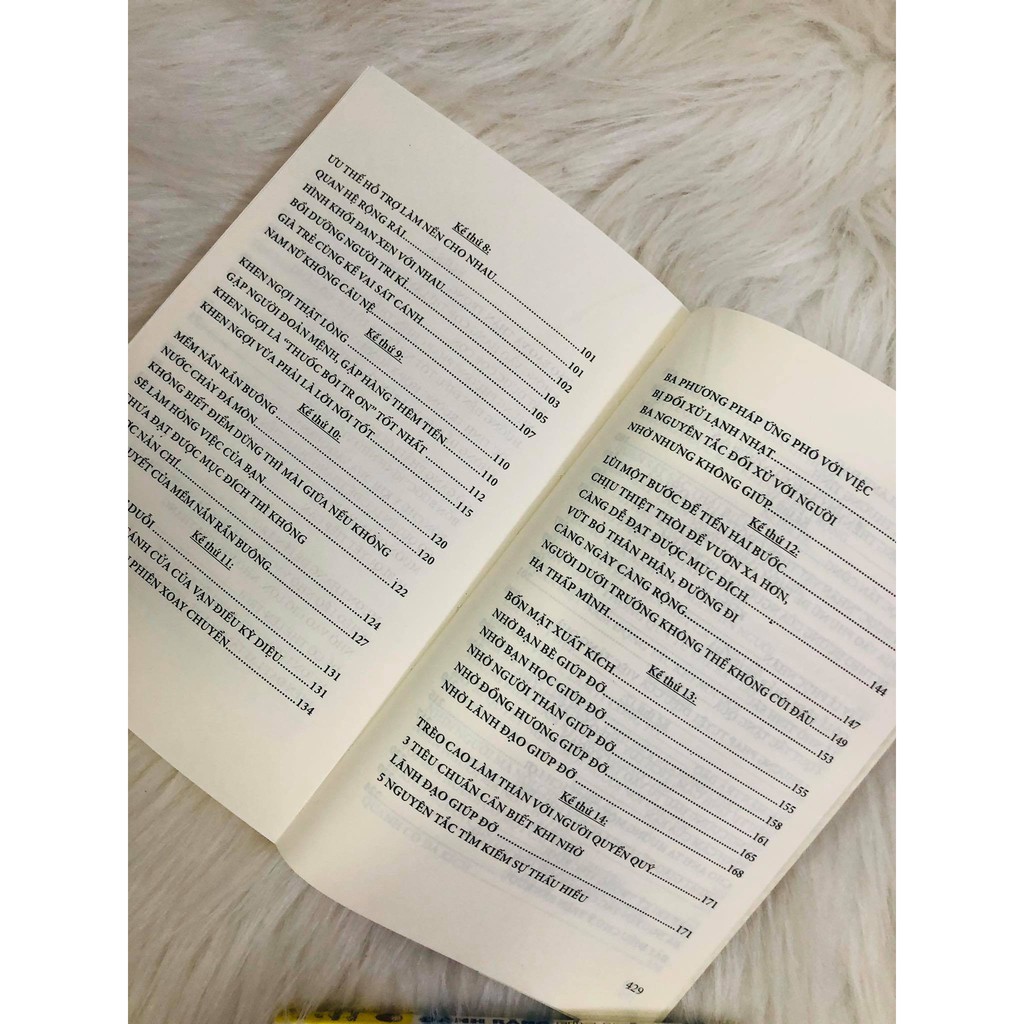 Kế thứ 8:
ƯU THẾ HỖ TRỢ LÀM NỀN CHO NHAU
QUAN HỆ RỘNG RÃI 101
HÌNH KHỐI ĐAN XEN VỚI NHAU 102
BỒI DƯỠNG NGƯỜI TRI KỈ 103
GIÀ TRẺ CÙNG KỀ VAI SÁT CÁNH 105
NAM NỮ KHÔNG CÂU NỆ 107
Kế thứ 9:
KHEN NGỢI THẬT LÒNG 110
GẶP NGƯỜI ĐOẢN MỆNH, GẶP HÀNG THÊM TIỀN 110
KHEN NGỢI LÀ “THUỐC BÔI TRƠN” TỐT NHẤT 112
KHEN NGỢI VỪA PHẢI LÀ LỜI NÓI TỐT 115
Kế thứ 10:
MỀM NẮN RẮN BUÔNG 120
NƯỚC CHẢY ĐÁ MÒN 120
KHÔNG BIẾT ĐIỂM DỪNG THÌ MÀI GIŨA NẾU KHÔNG
SẼ LÀM HỎNG VIỆC CỦA BẠN 122
CHƯA ĐẠT ĐƯỢC MỤC ĐÍCH THÌ KHÔNG
NẢN CHÍ 124
CỦA MỀM NẮN RẮN BUÔNG 127
Kế thứ 11:
ĐUỔI 131
CỦA CỦA VẠN ĐIỀU KỲ DIỆU 131
PHIÊN XOAY CHUYỂN 134
BA PHƯƠNG PHÁP ỨNG PHÓ VỚI VIỆC
BỊ ĐỐI XỬ LẠNH NHẠT
BA NGUYÊN TẮC ĐỐI XỬ VỚI NGƯỜI
NHỜ NHƯNG KHÔNG GIÚP
Kế thứ 12:
LÙI MỘT BƯỚC ĐỂ TIẾN HAI BƯỚC
CHỊU THIỆT THÒI ĐỂ VƯƠN XA HƠN,
CÀNG DỄ ĐẠT ĐƯỢC MỤC ĐÍCH 144
VỨT BỎ THÂN PHẬN, ĐƯỜNG ĐI
CÀNG NGÀY CÀNG RỘNG 147
NGƯỜI DƯỚI TRƯỚNG KHÔNG THỂ KHÔNG CÚI ĐẦU 149
HẠ THẤP MÌNH 153
Kế thứ 13:
BỐN MẶT XUẤT KÍCH 155
NHỜ BẠN BÈ GIÚP ĐỠ 155
NHỜ BẠN HỌC GIÚP ĐỠ 158
NHỜ NGƯỜI THÂN GIÚP ĐỠ 161
NHỜ ĐỒNG HƯƠNG GIÚP ĐỠ 165
NHỜ LÃNH ĐẠO GIÚP ĐỠ 168
Kế thứ 14:
TRÈO CAO LÀM THÂN VỚI NGƯỜI QUYỀN QUÝ 171
3 TIÊU CHUẨN CẦN BIẾT KHI NHỜ
LÃNH ĐẠO GIÚP ĐỠ 171
5 NGUYÊN TẮC TÌM KIẾM SỰ THẤU HIỂU
429